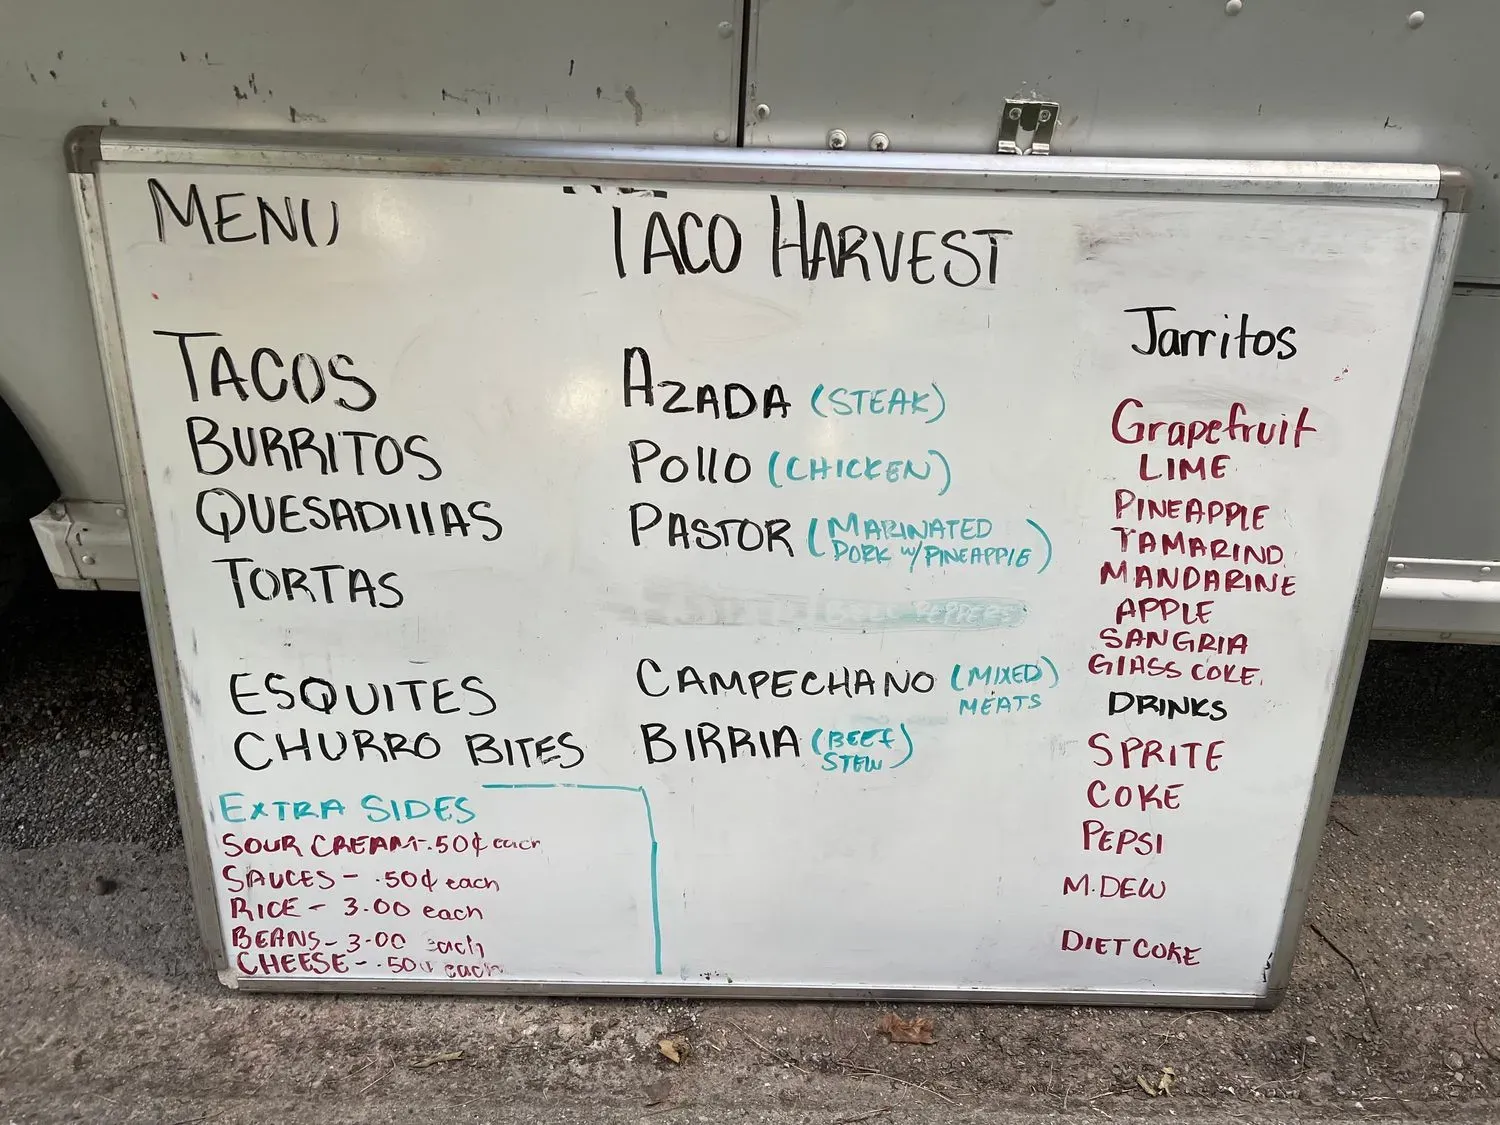 MENU
TACO HARVEST
TACOS
BURRITOS
QUESADILLAS
TORTAS
ESQUITES
CHURRO BITES
EXTRA SIDES
SOUR CREAM-.50¢ each
SAUCES - .50¢ each
RICE - 3.00 each
BEANS - 3.00 each
CHEESE - .50¢ each
AZADA (STEAK)
Pollo (CHICKEN)
PASTOR (MARINATED
PORK W/PINEAPPLE)
BELL PEPPERS
CAMPECHANO (MIXED)
MEATS
BIRRIA (BEEF)
STEW
Jarritos
Grapefruit
LIME
PINEAPPLE
TAMARIND
MANDARINE
APPLE
SANGRIA
GLASS COKE
DRINKS
SPRITE
COKE
PEPSI
M.DEW
DIET COKE